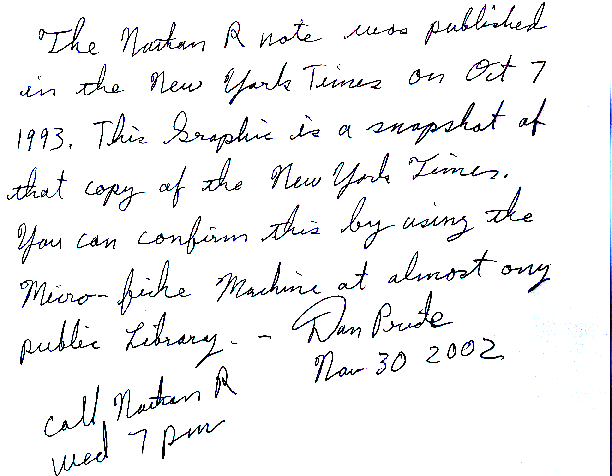 The Nathan R note was published
in the New York Times on Oct 7
1993. This Graphic is a snapshot of
that copy of the New York Times.
You can confirm this by using the
Micro-fiche Machine at almost any
public Library. - Dan Prude
Nov 30 2002
call Nathan R
wed 7 pm